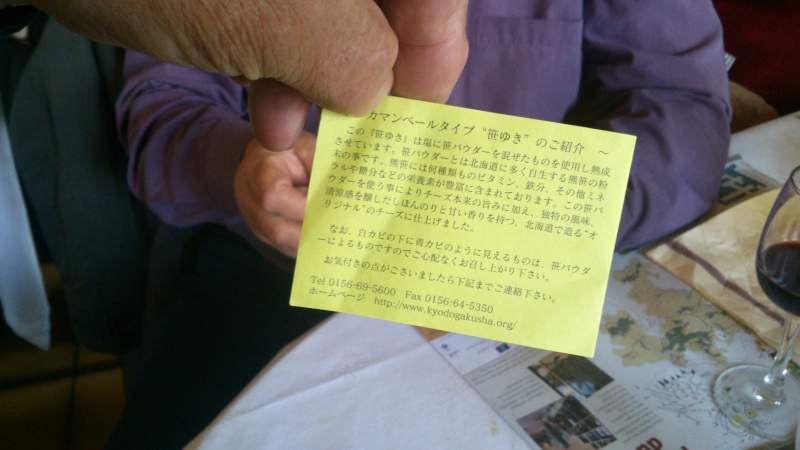 カマンベールタイプ“笹ゆき”のご紹介 ～
この『笹ゆき』は塩に笹パウダーを混ぜたものを使用し熟成
させています。笹パウダーとは北海道に多く自生する熊笹の粉
末の事です。熊笹には何種類ものビタミン、鉄分、その他ミネ
ラルや糖分などの栄養素が豊富に含まれております。この笹パ
ウダーを使う事によりチーズ本来の旨みに加え、独特の風味、
清涼感を醸しだしほんのりと甘い香りを持つ、北海道で造る“オ
リジナル”のチーズに仕上げました。
なお、白カビの下に青カビのように見えるものは、笹パウダ
ーによるものですのでご心配なくお召し上がり下さい。
お気付きの点がございましたら下記までご連絡下さい。
Tel 0156-69-5600 Fax 0156-64-5350
ホームページ http://www.kyodogakusha.org/